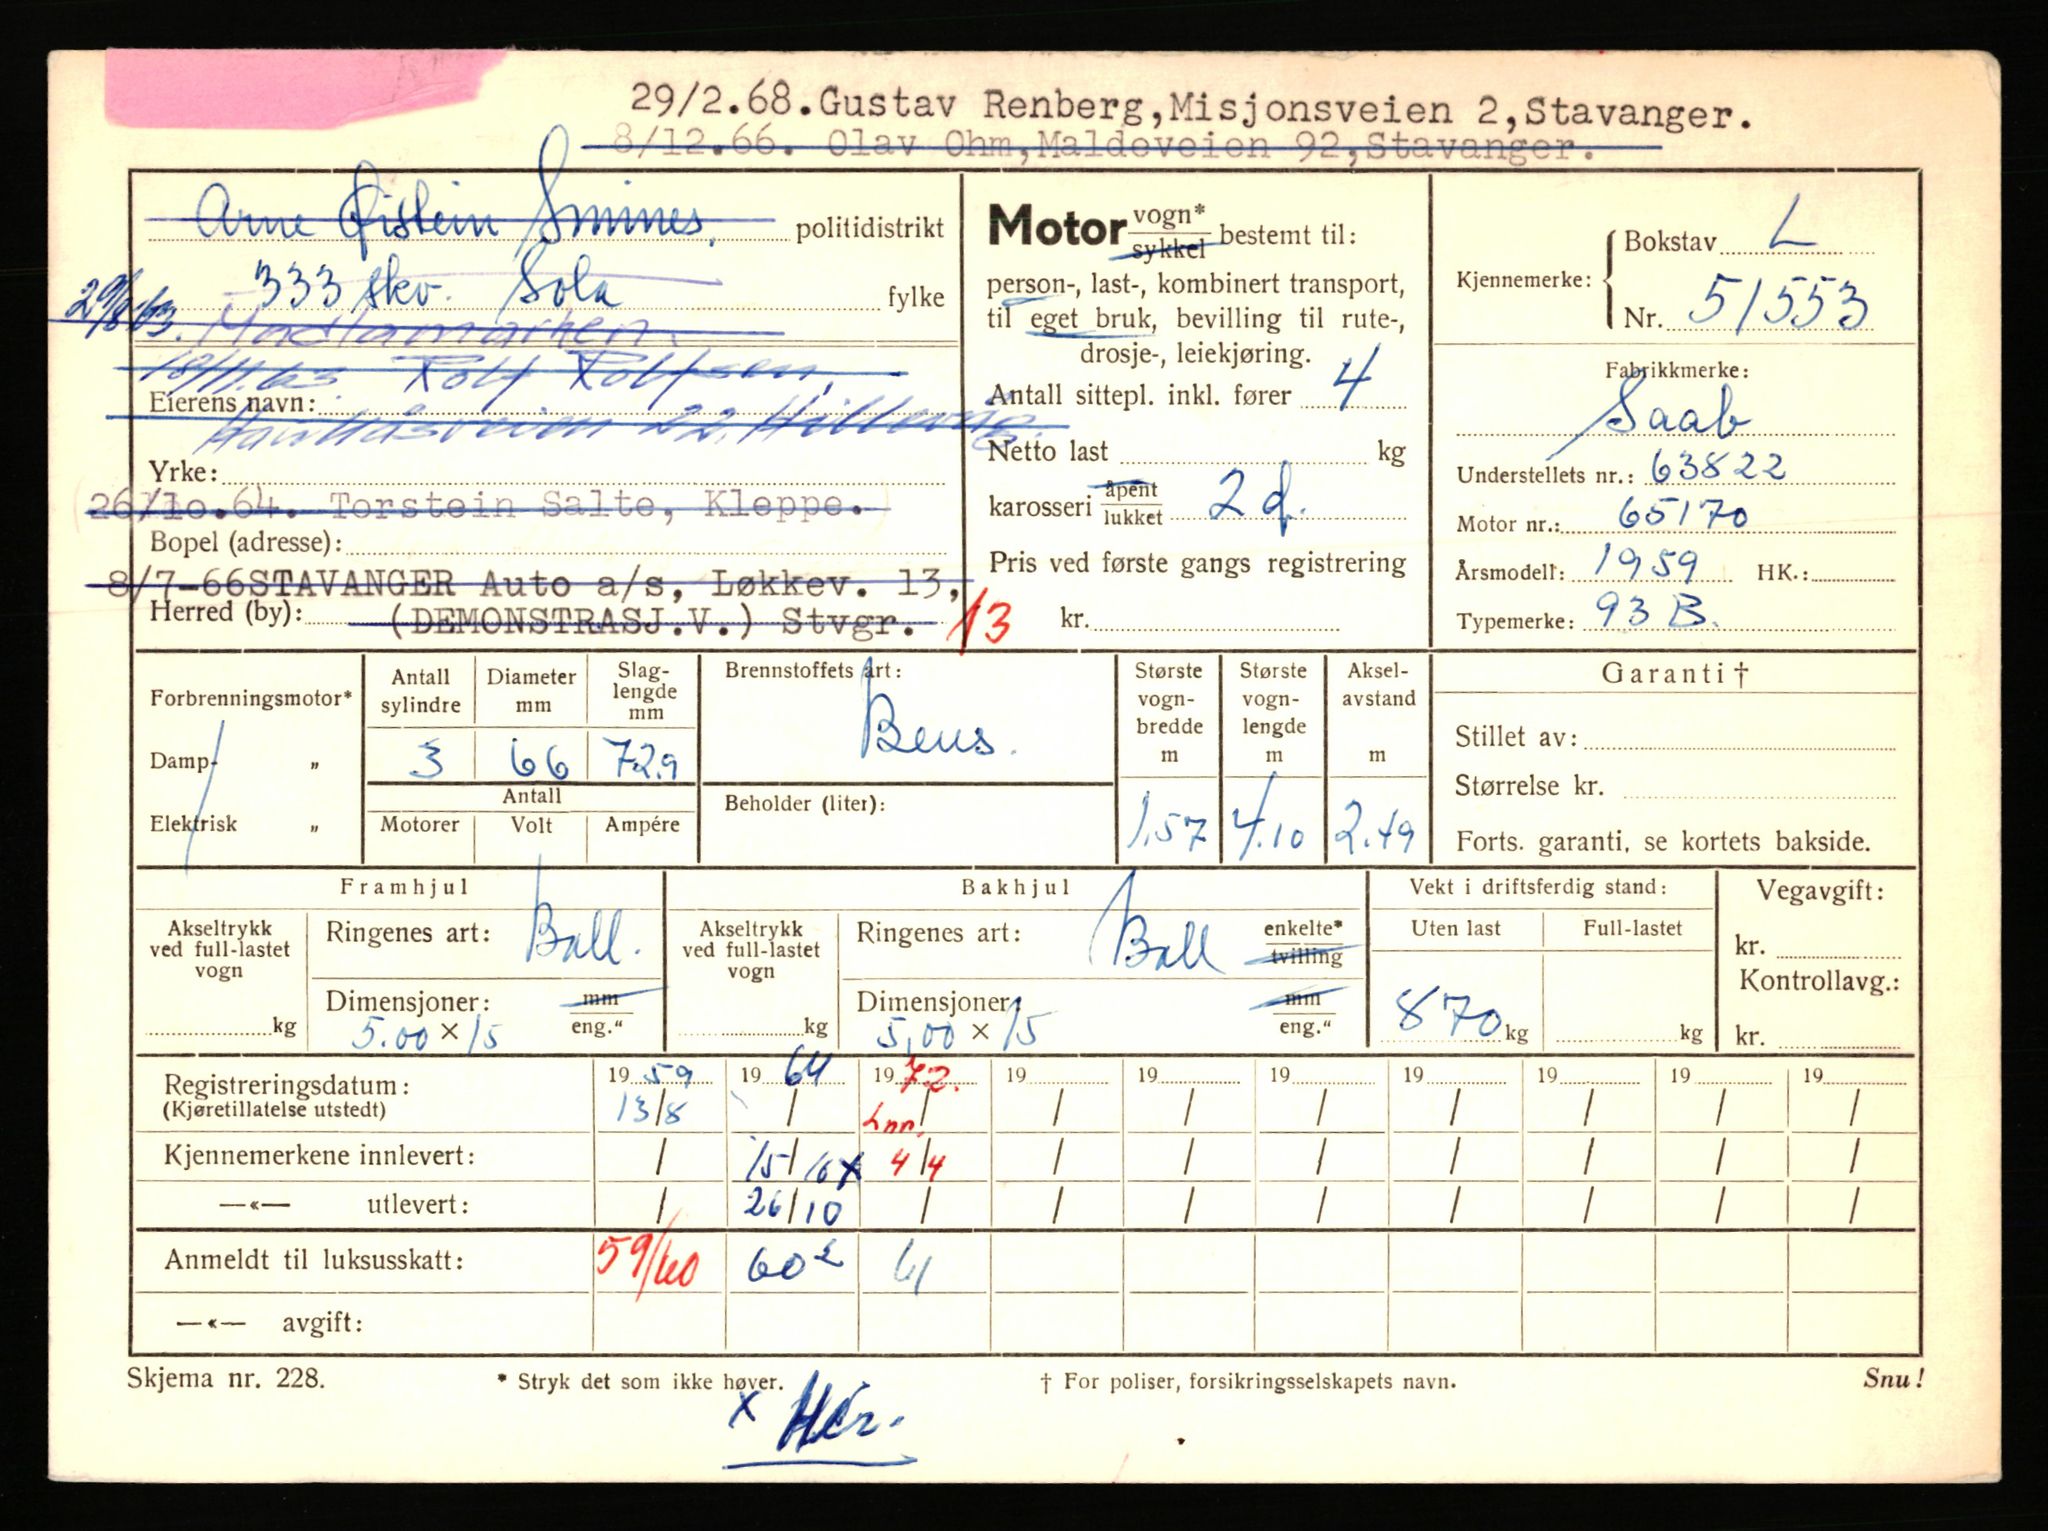 29/2.68.Gustav Renberg,Misjonsveien 2,Stavanger.
8/12.66. Olav Ohm,Maldeveien 92,Stavanger.
Arne Øistein politidistrikt
333 skv. Sola fylke
29/8/63. Madlamarken.
18/11.63 Rolf Rolfsen,
Eierens navn:
22. Hillevåg.
Yrke:
26/10.64. Torstein Salte, Kleppe.
Bopel (adresse):
8/7-66STAVANGER Auto a/s, Løkkev. 13,
Herred (by): (DEMONSTRASJ.V.) Stvgr. 13
Motor vogn* sykkel bestemt til:
person-, last-, kombinert transport,
til eget bruk, bevilling til rute-,
drosje-, leiekjøring.
Antall sittepl. inkl. fører 4
Netto last kg
karosseri åpent lukket 2 d.
Pris ved første gangs registrering
kr.
Kjennemerke: Bokstav L
Nr. 51553
Fabrikkmerke:
Saab
Understellets nr.: 63822
Motor nr.: 65170
Årsmodell: 1959 HK.:
Typemerke: 93 B.
Forbrenningsmotor*
Damp- „
Elektrisk „
Antall sylindre
Diameter mm
Slag-lengde mm
3 66 72.9
Antall
Motorer Volt Ampére
Brennstoffets art:
Bens.
Beholder (liter):
Største vogn-bredde m
1.57
Største vogn-lengde m
4.10
Aksel-avstand m
2.49
Garanti †
Stillet av:
Størrelse kr.
Forts. garanti, se kortets bakside.
Framhjul
Akseltrykk ved full-lastet vogn
kg
Ringenes art: Ball.
Dimensjoner: mm eng.“
5.00 × 15
Bakhjul
Akseltrykk ved full-lastet vogn
kg
Ringenes art: Ball enkelte* tvilling
Dimensjoner: mm eng.“
5,00 × 15
Vekt i driftsferdig stand:
Uten last Full-lastet
870 kg kg
Vegavgift:
kr.
Kontrollavg.:
kr.
Registreringsdatum: 19 59 19 64 19 72. 19 19 19 19 19 19 19
(Kjøretillatelse utstedt) 13/8 / Lnn. / / / / / / / /
Kjennemerkene innlevert: / 15/10 x 4/4 / / / / / / /
—«— utlevert: / 26/10 / / / / / / / /
Anmeldt til luksusskatt: 59/60 60 61
—«— avgift:
Skjema nr. 228. * Stryk det som ikke høver. † For poliser, forsikringsselskapets navn. Snu!
x